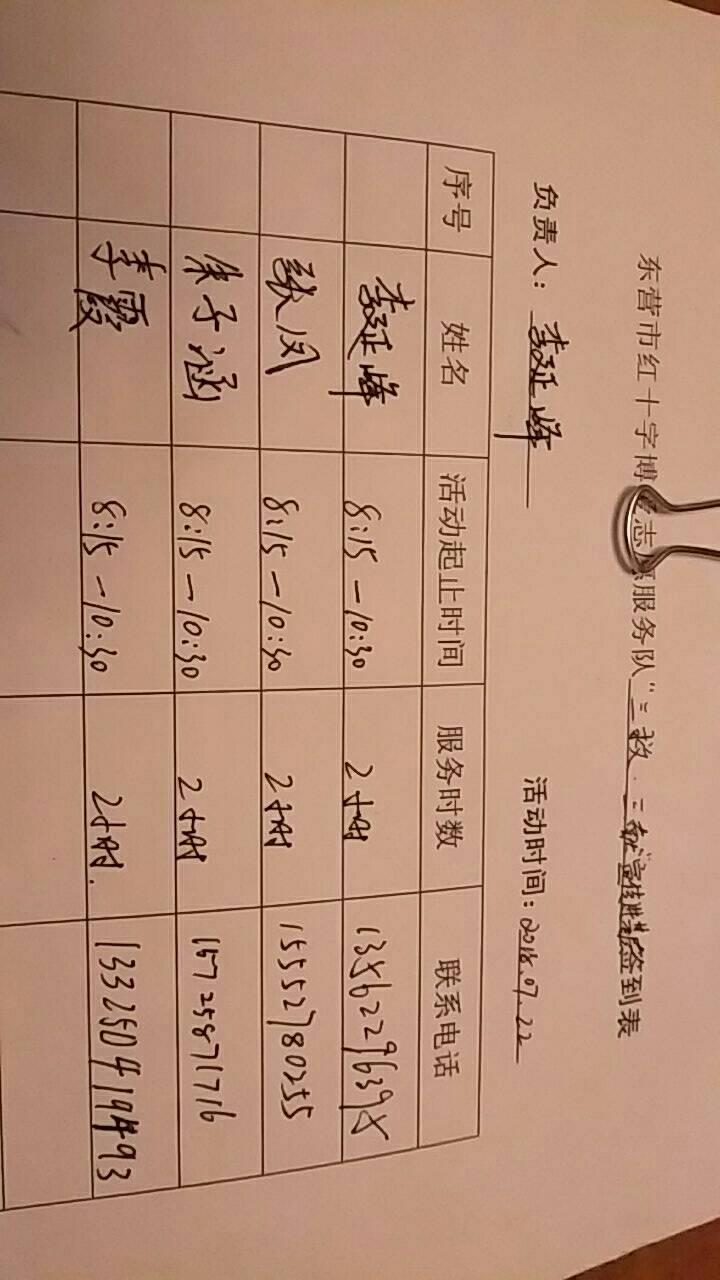 东营市红十字博 志愿服务队“三救·三献”宣传 签到表
负责人：李延峰 活动时间：2018.07.22
序号 姓名 活动起止时间 服务时数 联系电话
李延峰 8:15—10:30 2小时
张凤 8:15—10:30 2小时 15552780255
朱子涵 8:15—10:30 2小时 15725871716
李霞 8:15—10:30 2小时.